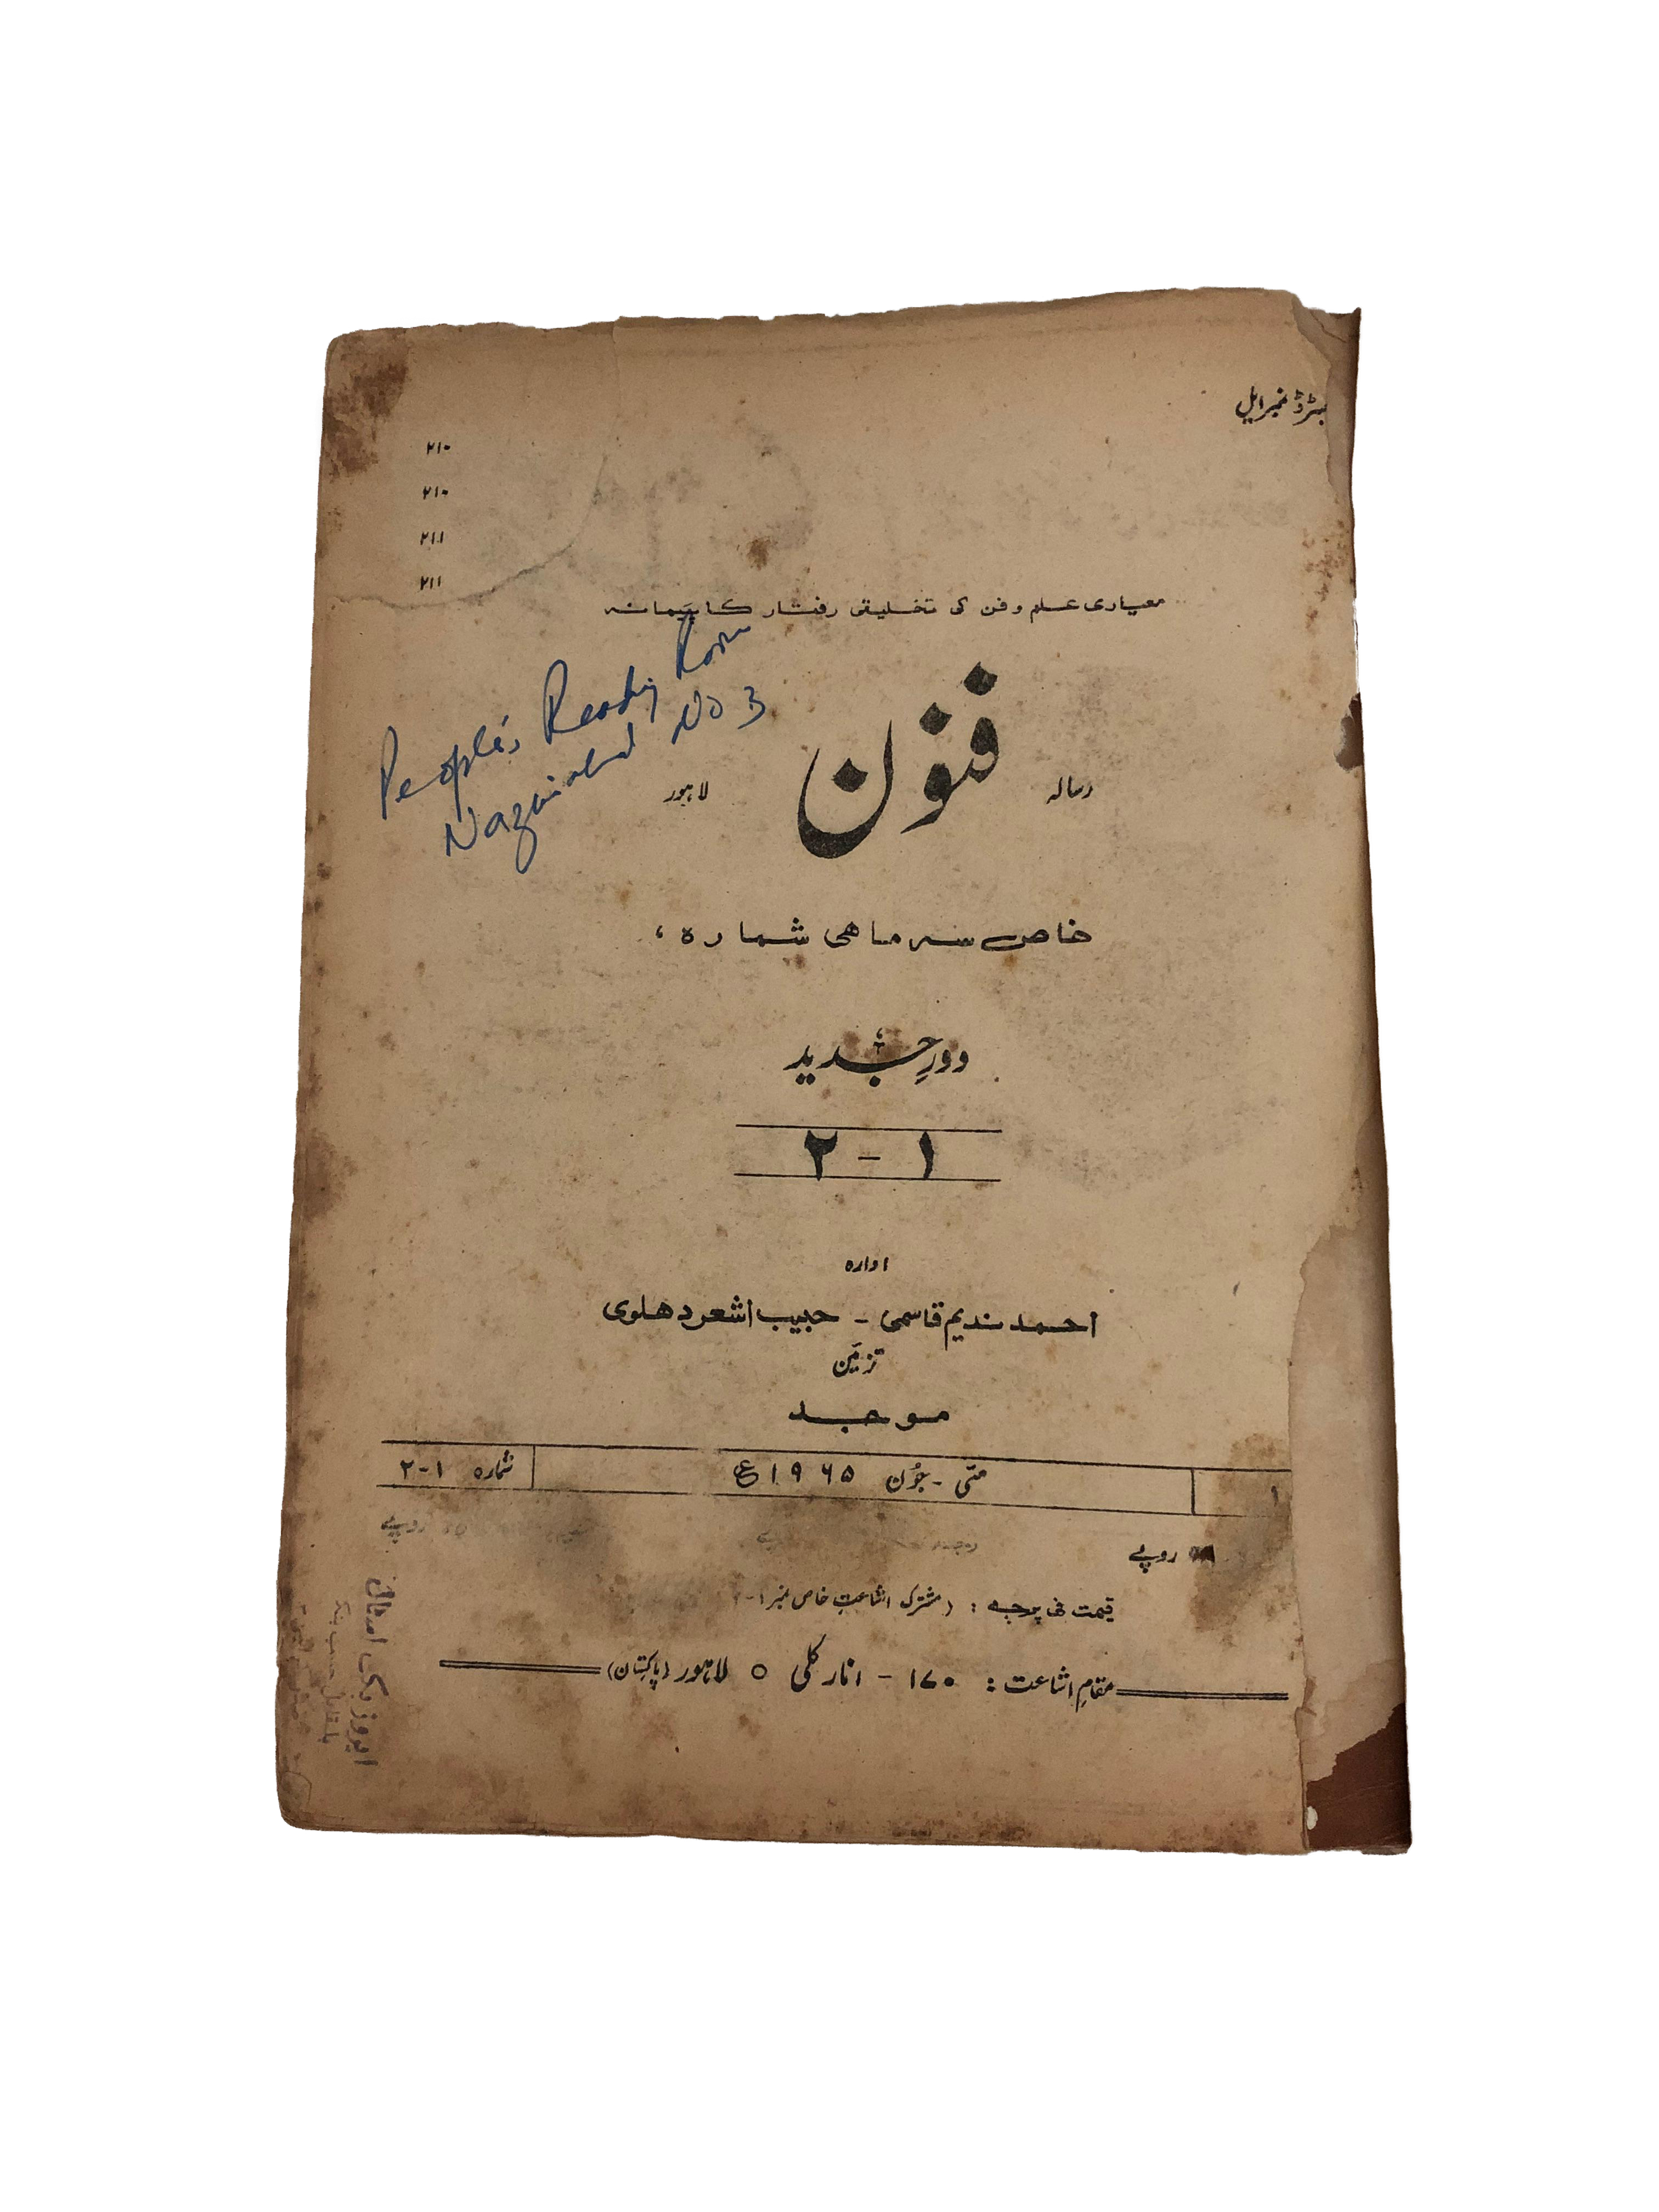 نمبر ایل
۲۱۰
۲۱۰
۲۱۱
۲۱۱
معیاری علم و فن کی تخلیقی رفتار کا پیمانہ
People's Reading Room
Nazimabad No 3
رسالہ فنون لاہور
خاص سہ ماھی شمارہ،
دورِ جدید
۱ - ۲
ادارہ
احمد ندیم قاسمی - حبیب اشعر دھلوی
تزئین
موجد
۱ مئی - جون ۱۹۶۵ع شمارہ ۱-۲
روپے
قیمت فی پرچہ : (مشترکہ اشاعتِ خاص نمبر ۱-
مقامِ اشاعت : ۱۷۰ - انارکلی ○ لاہور (پاکستان)